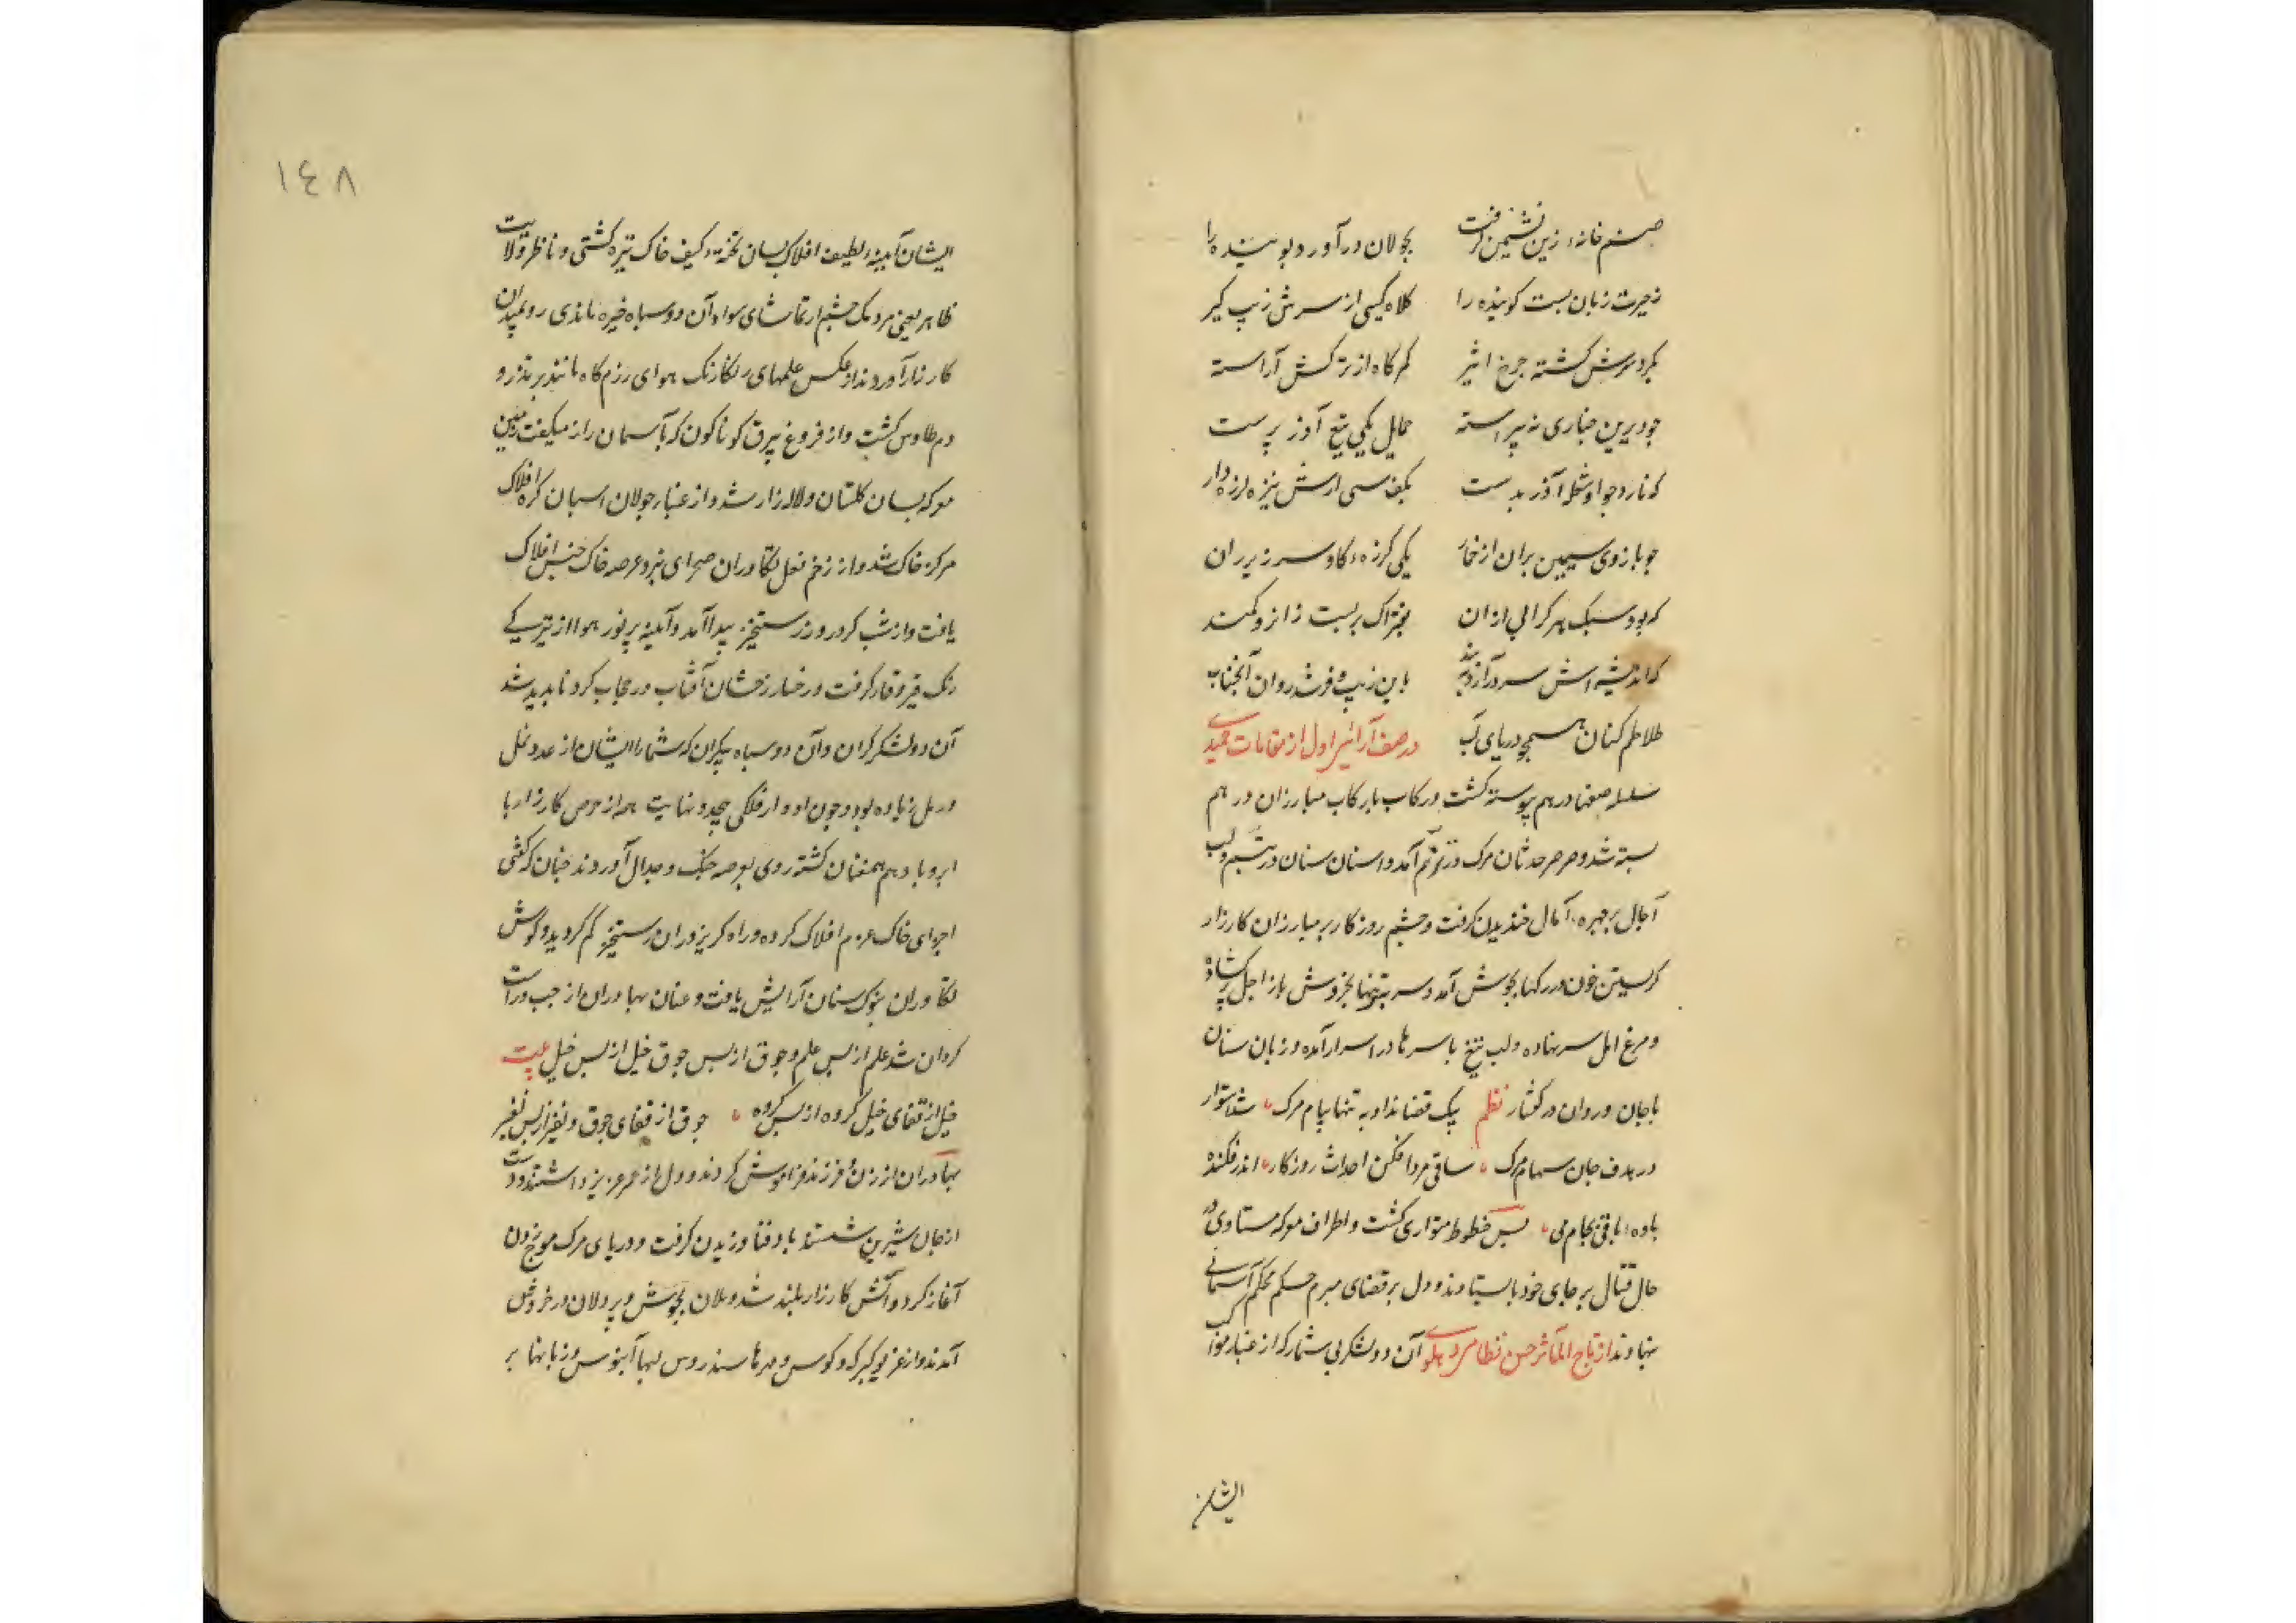 صنم خانهٔ زین نشیمن گرفت بجولان درآورد پوینده را
زحیرت زبان بست کوینده را کلاه کیی از سرش زیب کیر
بکرد سرش کشته چرخ اثیر کمرکاه از ترکش آراسته
چو دیرین چناری نه پیراسته حمایل یکی تیغ آذر پرست
که نارد چو او شعله آذر بدست بکف سی ارش نیزه لرزه دار
چو بازوی سیمین بران از خمار یکی کرزهٔ کاوسر زیر ران
که بود سبک هر کرانی ازان بفتراک بربست زانرو کمند
که اندیشه اش سر درآرد به بند باین زیب و فر شد روان آنجناب
طلاطم کنان همچو دریای آب در صف آرائی اول از مقامات حمیدی
سلسله صفها درهم پیوسته کشت و رکاب با رکاب مبارزان درهم
بسته شد و صرصر حدثان مرک در ترنم آمد و اسنان سنان در تبسم و لب
آجال بر چهرهٔ آمال خندیدن کرفت و چشم روزکار بر مبارزان کارزار
کریستن خون در رکها بجوش آمد و سر بتنها بخروش باز اجل پر کشاده
و مرغ امل سر نهاده و لب تیغ با سرها در اسرار آمده و زبان سنان
با جان و روان در کفتار نظم پیک قضا نداد به تنها پیام مرک شد استوار
در هدف جان سهام مرک ساقی مرد افکن احداث روزکار اندر فکنده
بادهٔ باقی بجام می پس خطوط متواری کشت و اطراف معرکه متساوی در
حال قتال بر جای خود باستادند و دل بر قضای مبرم حکم محکم آسمانی
نهادند از تاج المآثر حسن نظامی دهلوی آن دو لشکر بی شمار که از غبار مواکب
ایشان
١٤٨
ایشان آیینهٔ لطیف افلاک بسان تختهٔ کثیف خاک تیره کشتی و ناظر ولایت
ظاهر یعنی مردمک چشم از تماشای سواد آن دو سپاه خیره ماندی رو بمیدان
کارزار آوردند از عکس علمهای رنکارنک هوای رزم کاه مانند پر تذرو
دم طاوس کشت و از فروغ بیرق کوناکون که بآسمان راز میکفت زمین
معرکه بسان کلستان و لاله زار شد و از غبار جولان اسبان کره افلاک
مرکز خاک شد و از زخم نعل تکاوران صحرای نبرد عرصه خاک جنبش افلاک
یافت و از شب کرد روز رستخیز پیدا آمد و آیینه پر نور هوا از تیرکی
رنک قیر و قار کرفت و رخسار رخشان آفتاب در حجاب کرد ناپدید شد
آن دو لشکر کران و آن دو سپاه بیکران که شمار ایشان از عدد نمل
و رمل زیاده بود و چون ادوار فلکی بیحد و نهایت همه از حرص کارزار با
ابر و باد هم عنان کشته روی بعرصه جنک و جدال آوردند چنان که کفتی
اجزای خاک عزم افلاک کرده و راه کریز دران رستخیز کم کردید و کوش
تکاوران بنوک سنان آرایش یافت و عنان بهادران از چپ و راست
کردان شد علم از پس علم و جوق از پس جوق خیل از پس خیل بیت
خیل از قفای خیل کروه از پس کروه جوق از قفای جوق و نفیر از پس نفیر
بهادران از زن و فرزند فراموش کردند و دل از عمر عزیز برداشتند و دست
از جان شیرین شستند باد فنا وزیدن کرفت و دریای مرک موج زدن
آغاز کرد و آتش کارزار بلند شد و یلان بجوش و پردلان در خروش
آمدند و از غریو کبرکه و کوس و مهرها سندروس لبها آبنوس و زبانها بر